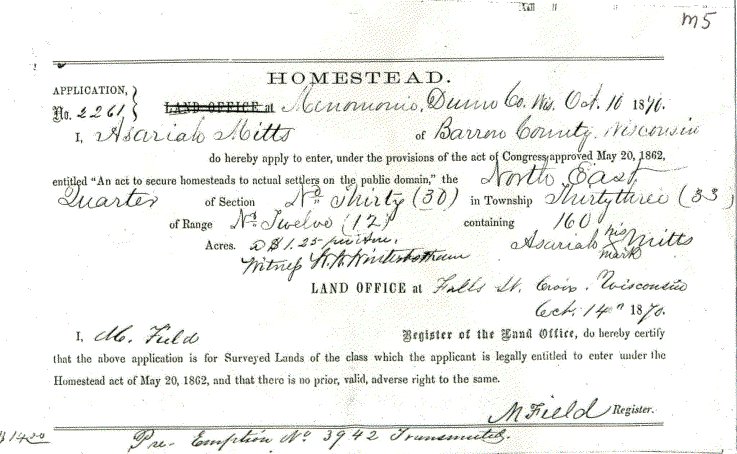 m5
HOMESTEAD.
APPLICATION,
No. 2261 LAND OFFICE at Menomonie, Dunn Co. Wis. Oct. 10 1870.
I, Asariah Mitts of Barron County, Wisconsin
do hereby apply to enter, under the provisions of the act of Congress approved May 20, 1862,
entitled "An act to secure homesteads to actual settlers on the public domain," the North East
Quarter of Section No. Thirty (30) in Township Thirtythree (33)
of Range No. Twelve (12) containing 160
Acres. @ $1.25 per Acre. Asariah his mark Mitts
Witness
LAND OFFICE at Falls St. Croix. Wisconsin
Oct. 14th 1870.
I, M. Field Register of the Land Office, do hereby certify
that the above application is for Surveyed Lands of the class which the applicant is legally entitled to enter under the
Homestead act of May 20, 1862, and that there is no prior, valid, adverse right to the same.
M Field Register.
$14.00 Pre-Emption No 3942 Transmuted.